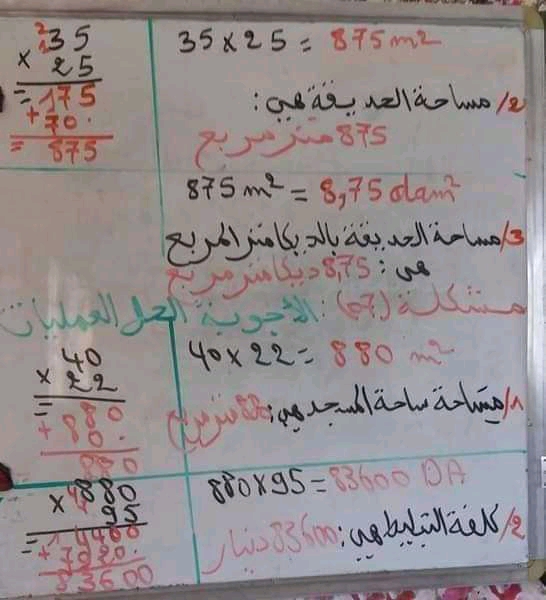 35 × 25 = 875 m²
35
× 25
= 175
+ 70.
= 875
2/ مساحة الحديقة هي:
875 متر مربع
875 m² = 8,75 dam²
3/ مساحة الحديقة بالديكامتر المربع
هي: 8,75 ديكامتر مربع
مشكلة (07): الأجوبة الحل العمليات
40 × 22 = 880 m²
40
× 22
+ 80.
880
1/ مساحة ساحة المسجد هي: 880 متر مربع
880 × 95 = 83600 DA
880
× 95
= 4400
+ 7920.
83600
2/ كلفة التبليط هي: 83600 دينار